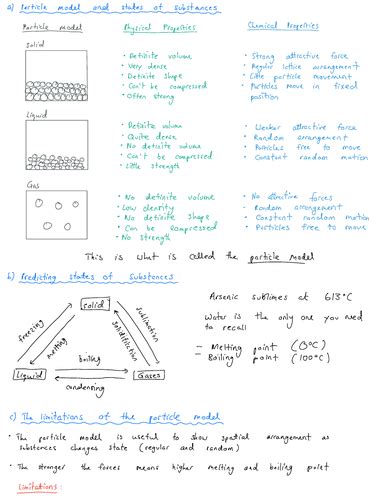 a) Particle model and states of substances
Particle model
Physical Properties
Chemical Properties
Solid
• Definite volume
• Very dense
• Definite shape
• Can't be compressed
• Often strong
• Strong attractive force
• Regular lattice arrangement
• Little particle movement
• Particles move in fixed
position
Liquid
• Definite volume
• Quite dense
• No definite volume
• Can't be compressed
• Little strength
• Weaker attractive force
• Random arrangement
• Particles free to move
• Constant random motion
Gas
• No definite volume
• Low density
• No definite shape
• Can be compressed
• No strength
• No attractive forces
• Random arrangement
• Constant random motion
• Particles free to move
This is what is called the particle model
b) Predicting states of Substances
solid
freezing
melting
sublimation
solidification
boiling
Liquid
Gases
condensing
Arsenic sublimes at 613°C
Water is the only one you need
to recall
- Melting point (0°C)
- Boiling point (100°C)
c) The limitations of the particle model
• The particle model is useful to show spatial arrangement as
substances changes state (regular and random)
• The stronger the forces means higher melting and boiling point
Limitations: